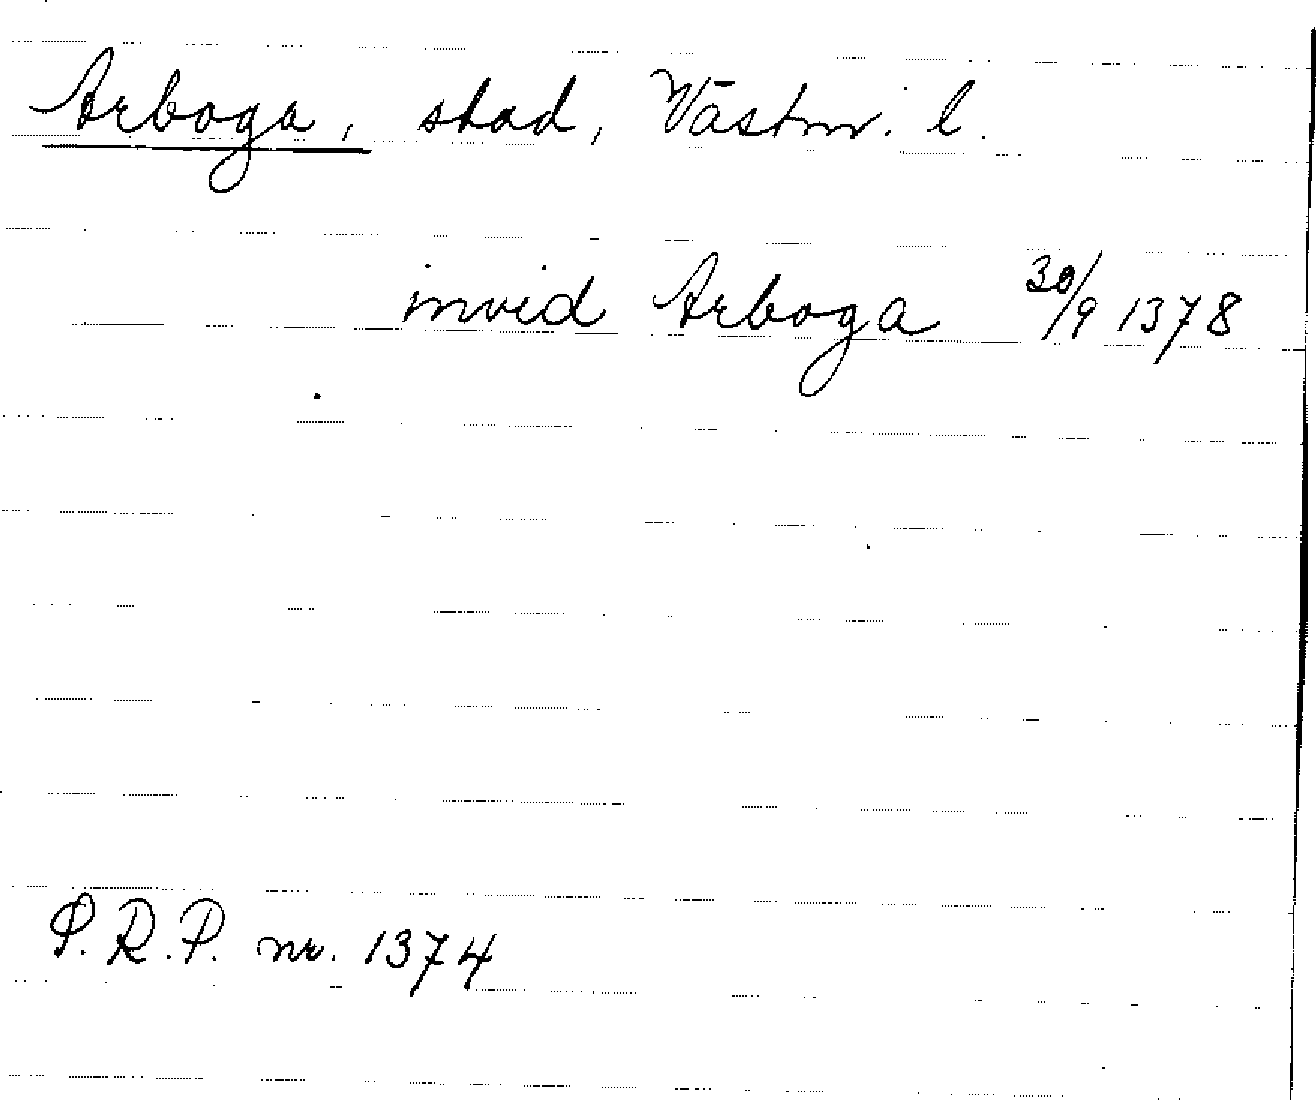 Arboga, stad, Västm. l.
invid Arboga 30/9 1378
P.R.P. nr. 1374